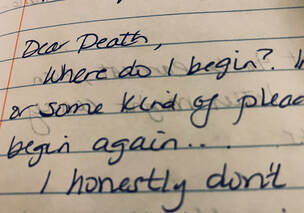 Dear Death,
Where do I begin?
or some kind of plead
begin again...
I honestly don't